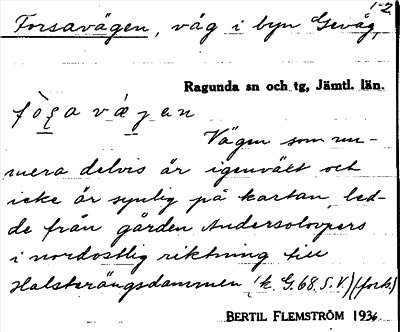 1-2
Forsavägen, väg i byn Gevåg,
Ragunda sn och tg, Jämtl. län.
Vägen som nu-
mera delvis är igenvält och
icke är synlig på kartan, led-
de från gården Andersolovpers
i nordostlig riktning till
Halsterängsdammen (k. G. 68. S. V.) (forts.)
BERTIL FLEMSTRÖM 1936